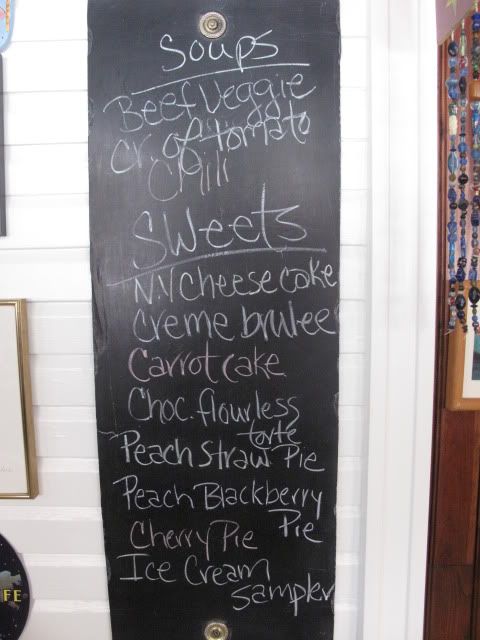 Soups
Beef Veggie
Cr of tomato
Chili
Sweets
N.Y Cheese cake
Creme brulee
Carrot cake
Choc. flourless
torte
Peach Straw Pie
Peach Blackberry
Pie
Cherry Pie
Ice Cream
sampler
FE